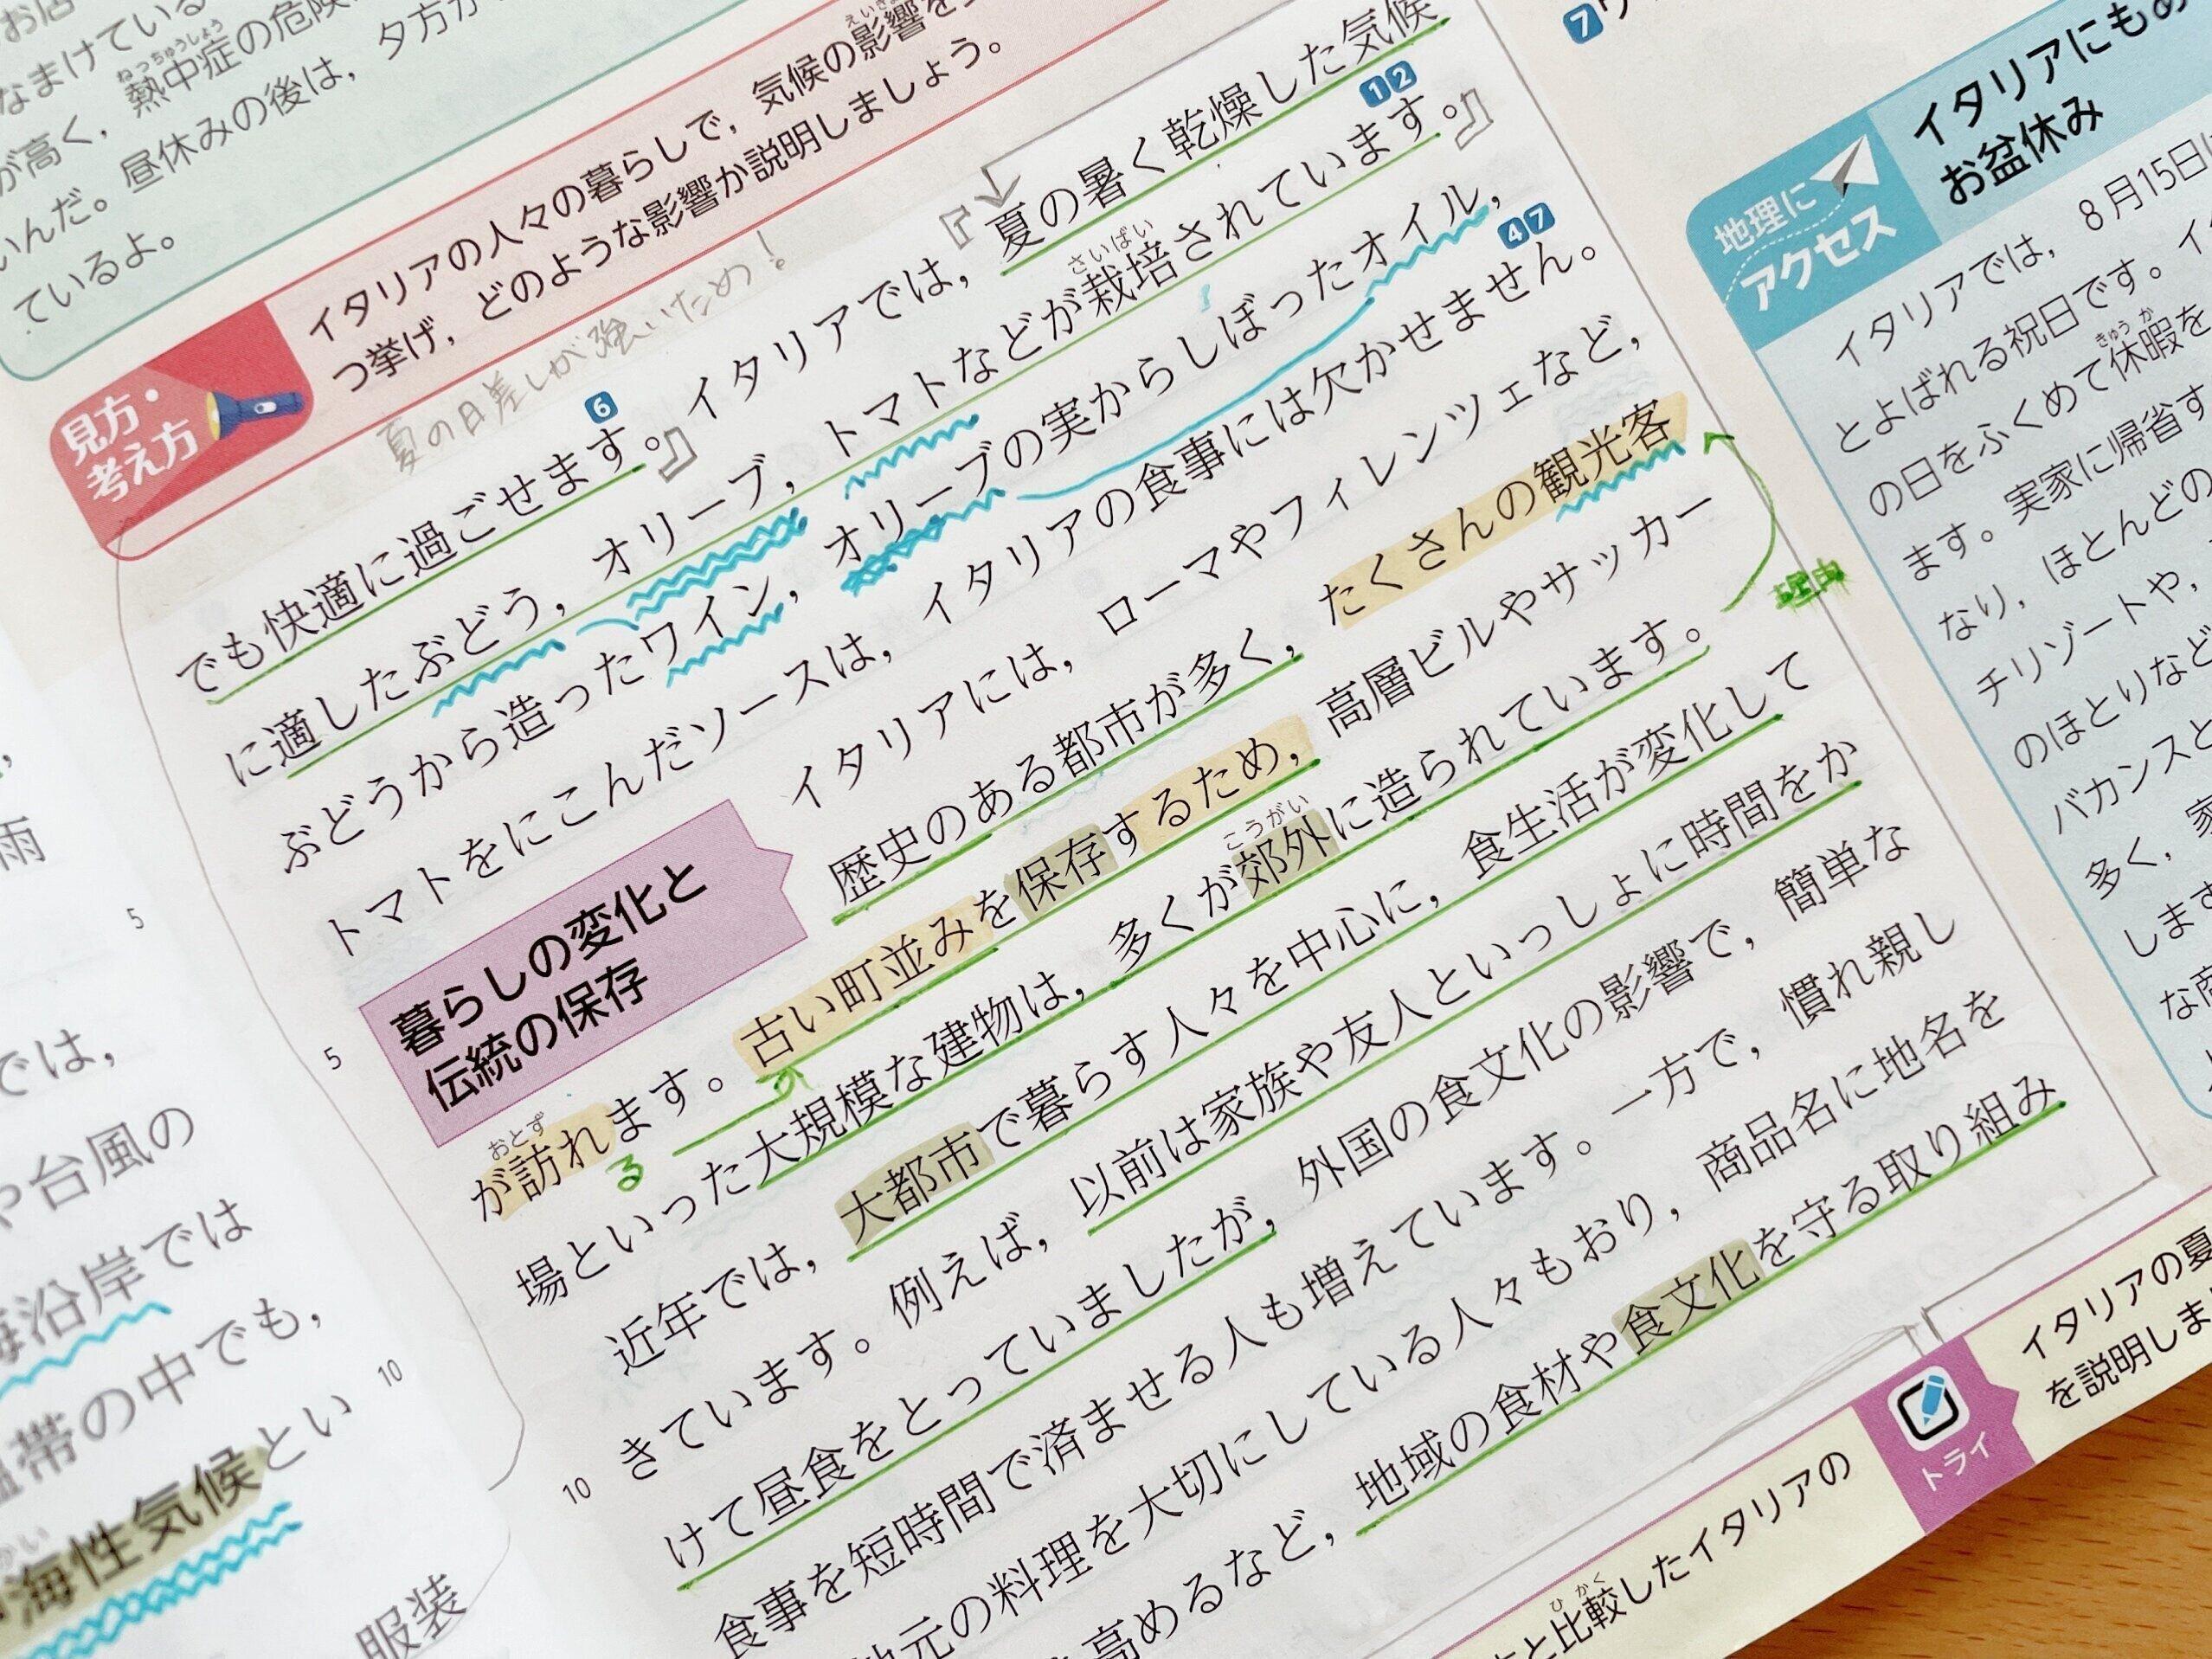 お店
なまけている
ねっちゅうしょう
が高く，熱中症の危険
いんだ。昼休みの後は，夕方か
ているよ。
見方・
考え方
イタリアの人々の暮らしで，気候の影響を
つ挙げ，どのような影響か説明しましょう。
夏の日差しが強いため！
でも快適に過ごせます。6 イタリアでは，夏の暑く乾燥した気候
さいばい
に適したぶどう，オリーブ，トマトなどが栽培されています。12
ぶどうから造ったワイン，オリーブの実からしぼったオイル，
トマトをにこんだソースは，イタリアの食事には欠かせません。47
暮らしの変化と
伝統の保存
イタリアには，ローマやフィレンツェなど，
歴史のある都市が多く，たくさんの観光客
おとず
が訪れます。古い町並みを保存するため，高層ビルやサッカー
る
理由
こうがい
場といった大規模な建物は，多くが郊外に造られています。
近年では，大都市で暮らす人々を中心に，食生活が変化して
きています。例えば，以前は家族や友人といっしょに時間をか
けて昼食をとっていましたが，外国の食文化の影響で，簡単な
食事を短時間で済ませる人も増えています。一方で，慣れ親し
地元の料理を大切にしている人々もおり，商品名に地名を
高めるなど，地域の食材や食文化を守る取り組み
5
10
トライ
イタリアの夏
を説明しま
ひかく
と比較したイタリアの
7
地理に
アクセス
イタリアにも
お盆休み
イタリアでは，8月15日
とよばれる祝日です。イ
きゅうか
の日をふくめて休暇を
ます。実家に帰省す
なり，ほとんどの
チリゾートや，
のほとりなど
バカンスと
多く，家
します
な商
5
雨
では，
や台風の
海沿岸では
温帯の中でも，
10
海性気候とい
服装